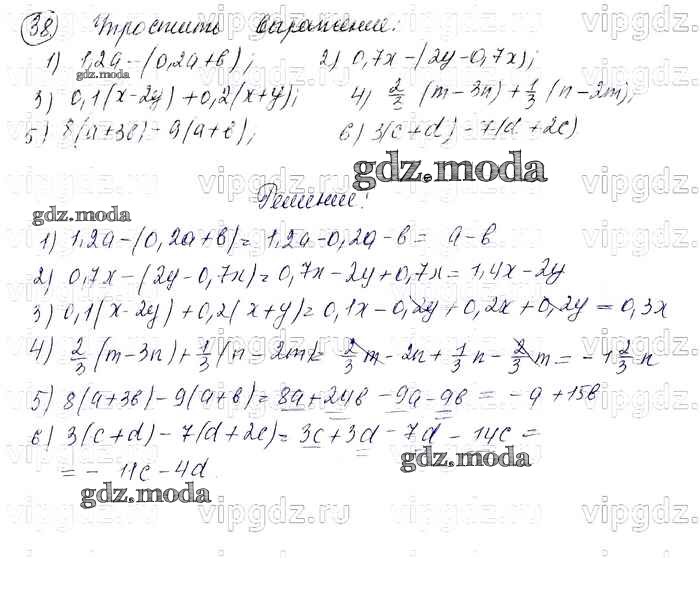 38) Упростить выражение:
1) 1,2a-(0,2a+b); 2) 0,7x-(2y-0,7x);
3) 0,1(x-2y)+0,2(x+y); 4) 2/3 (m-3n)+1/3 (n-2m);
5) 8(a+3b)-9(a+b); 6) 3(c+d)-7(d+2c)
gdz.moda
Решение:
gdz.moda
1) 1,2a-(0,2a+b)=1,2a-0,2a-b= a-b
2) 0,7x-(2y-0,7x)=0,7x-2y+0,7x=1,4x-2y
3) 0,1(x-2y)+0,2(x+y)=0,1x-0,2y+0,2x+0,2y=0,3x
4) 2/3 (m-3n)+1/3 (n-2m)= 2/3 m-2n+1/3 n-2/3 m=-1 2/3 n
5) 8(a+3b)-9(a+b)=8a+24b-9a-9b= -a+15b
6) 3(c+d)-7(d+2c)=3c+3d-7d-14c=
=-11c-4d
gdz.moda
gdz.moda